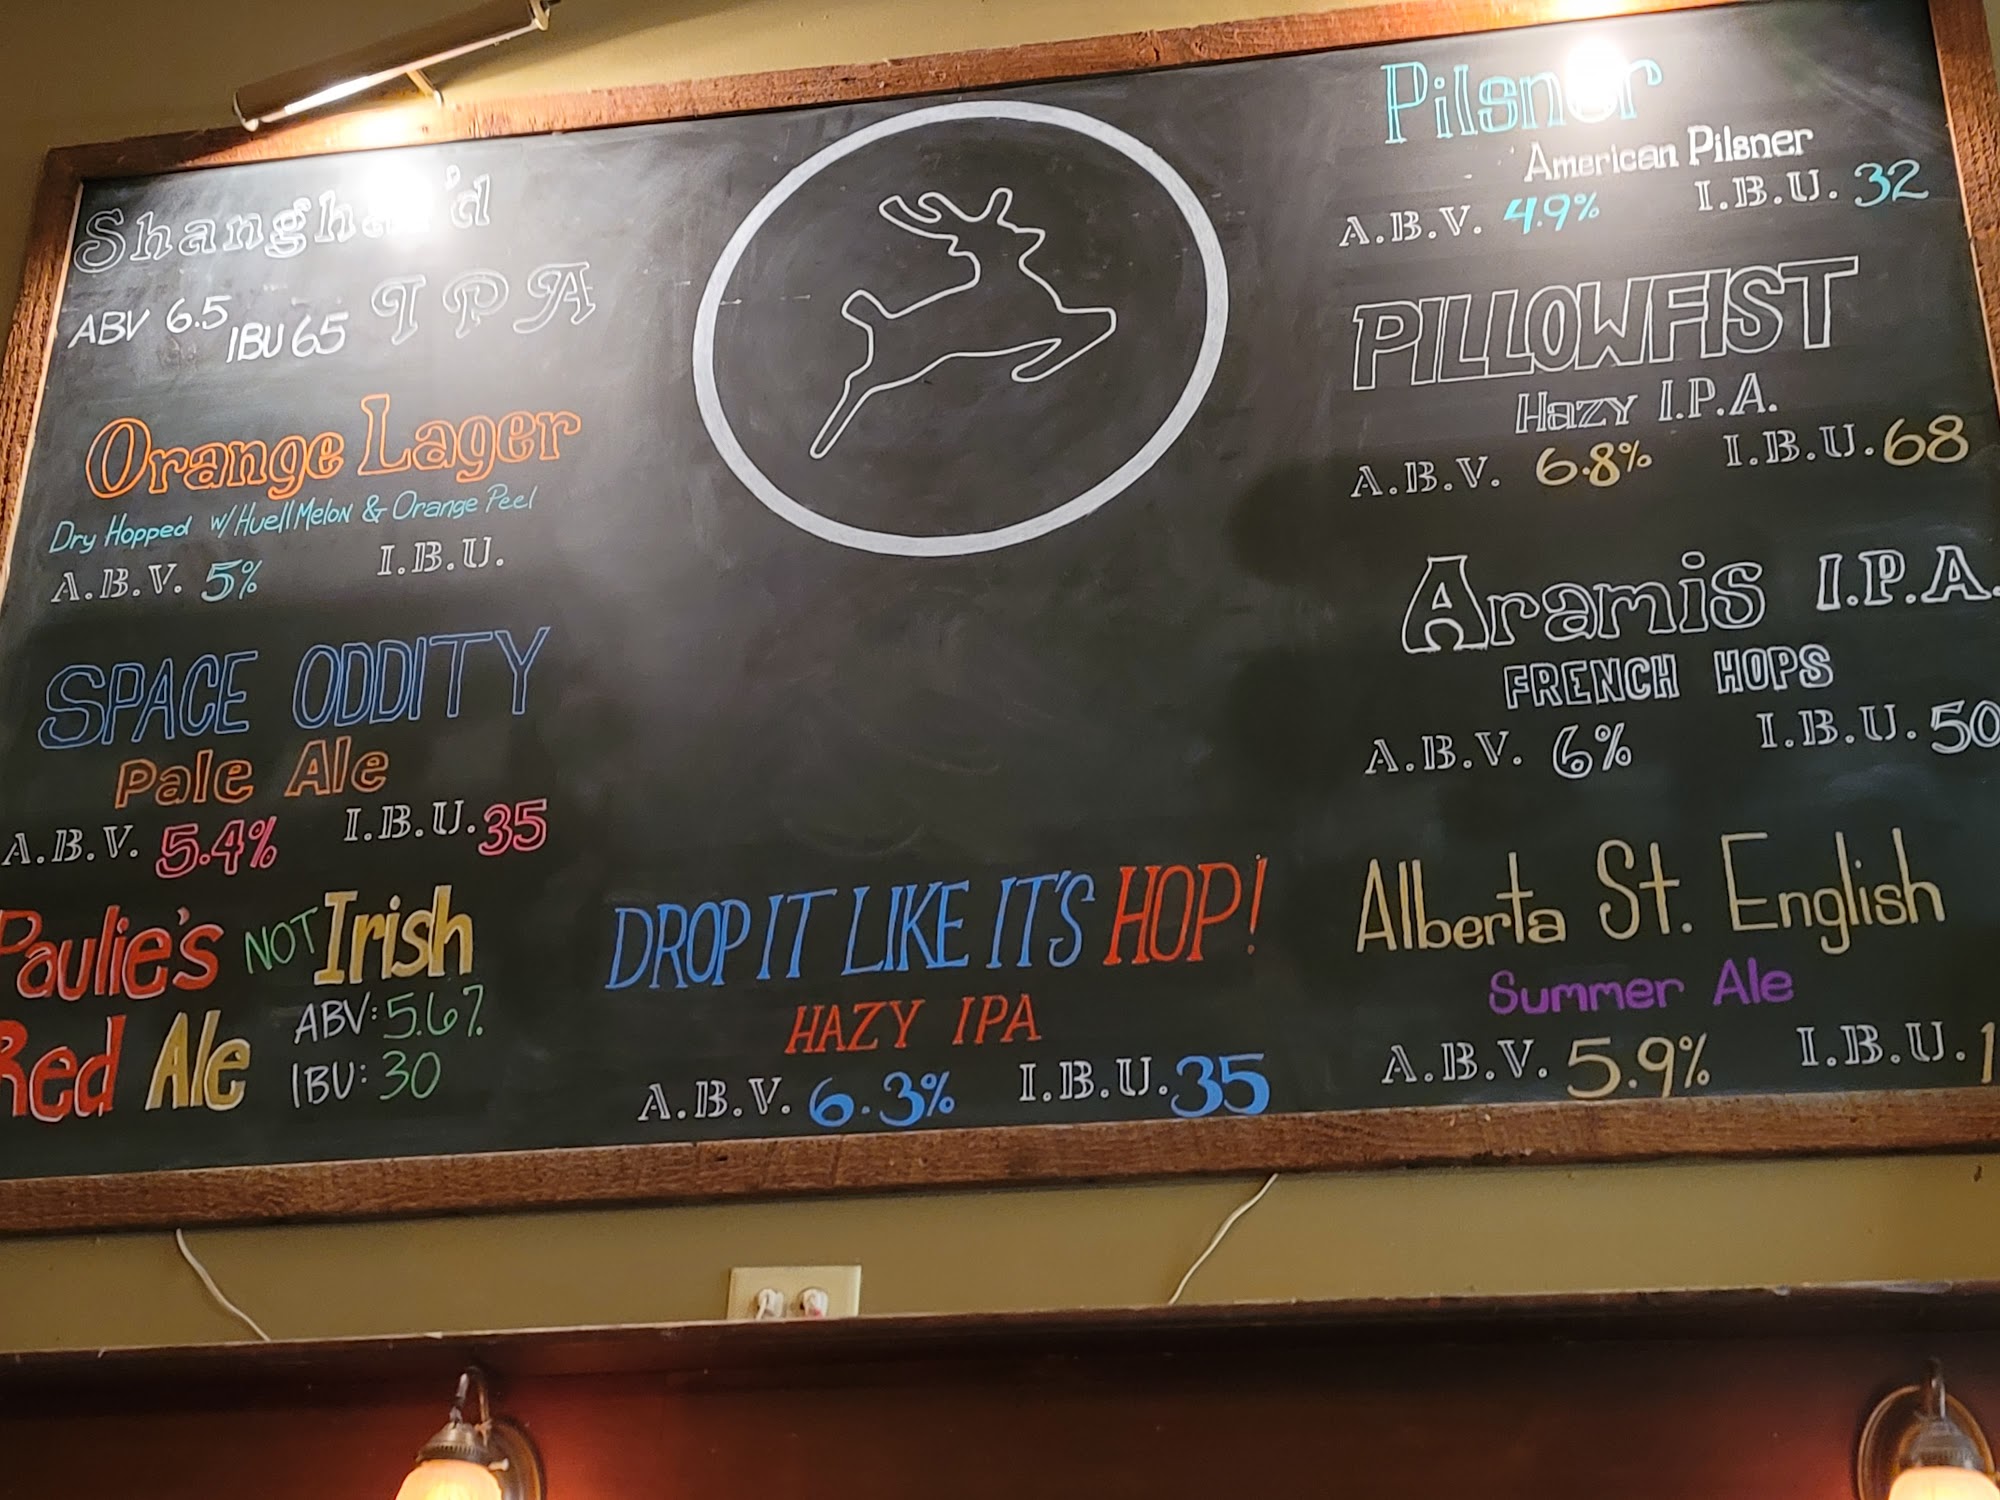 Shanghai'd
IPA
ABV 6.5 IBU 65
Orange Lager
Dry Hopped w/ Huell Melon & Orange Peel
A.B.V. 5% I.B.U.
SPACE ODDITY
Pale Ale
A.B.V. 5.4% I.B.U. 35
Paulie's NOT Irish
Red Ale
ABV: 5.6%
IBU: 30
DROP IT LIKE IT'S HOP!
HAZY IPA
A.B.V. 6.3% I.B.U. 35
Pilsner
American Pilsner
A.B.V. 4.9% I.B.U. 32
PILLOWFIST
Hazy I.P.A.
A.B.V. 6.8% I.B.U. 68
Aramis I.P.A.
FRENCH HOPS
A.B.V. 6% I.B.U. 50
Alberta St. English
Summer Ale
A.B.V. 5.9% I.B.U.